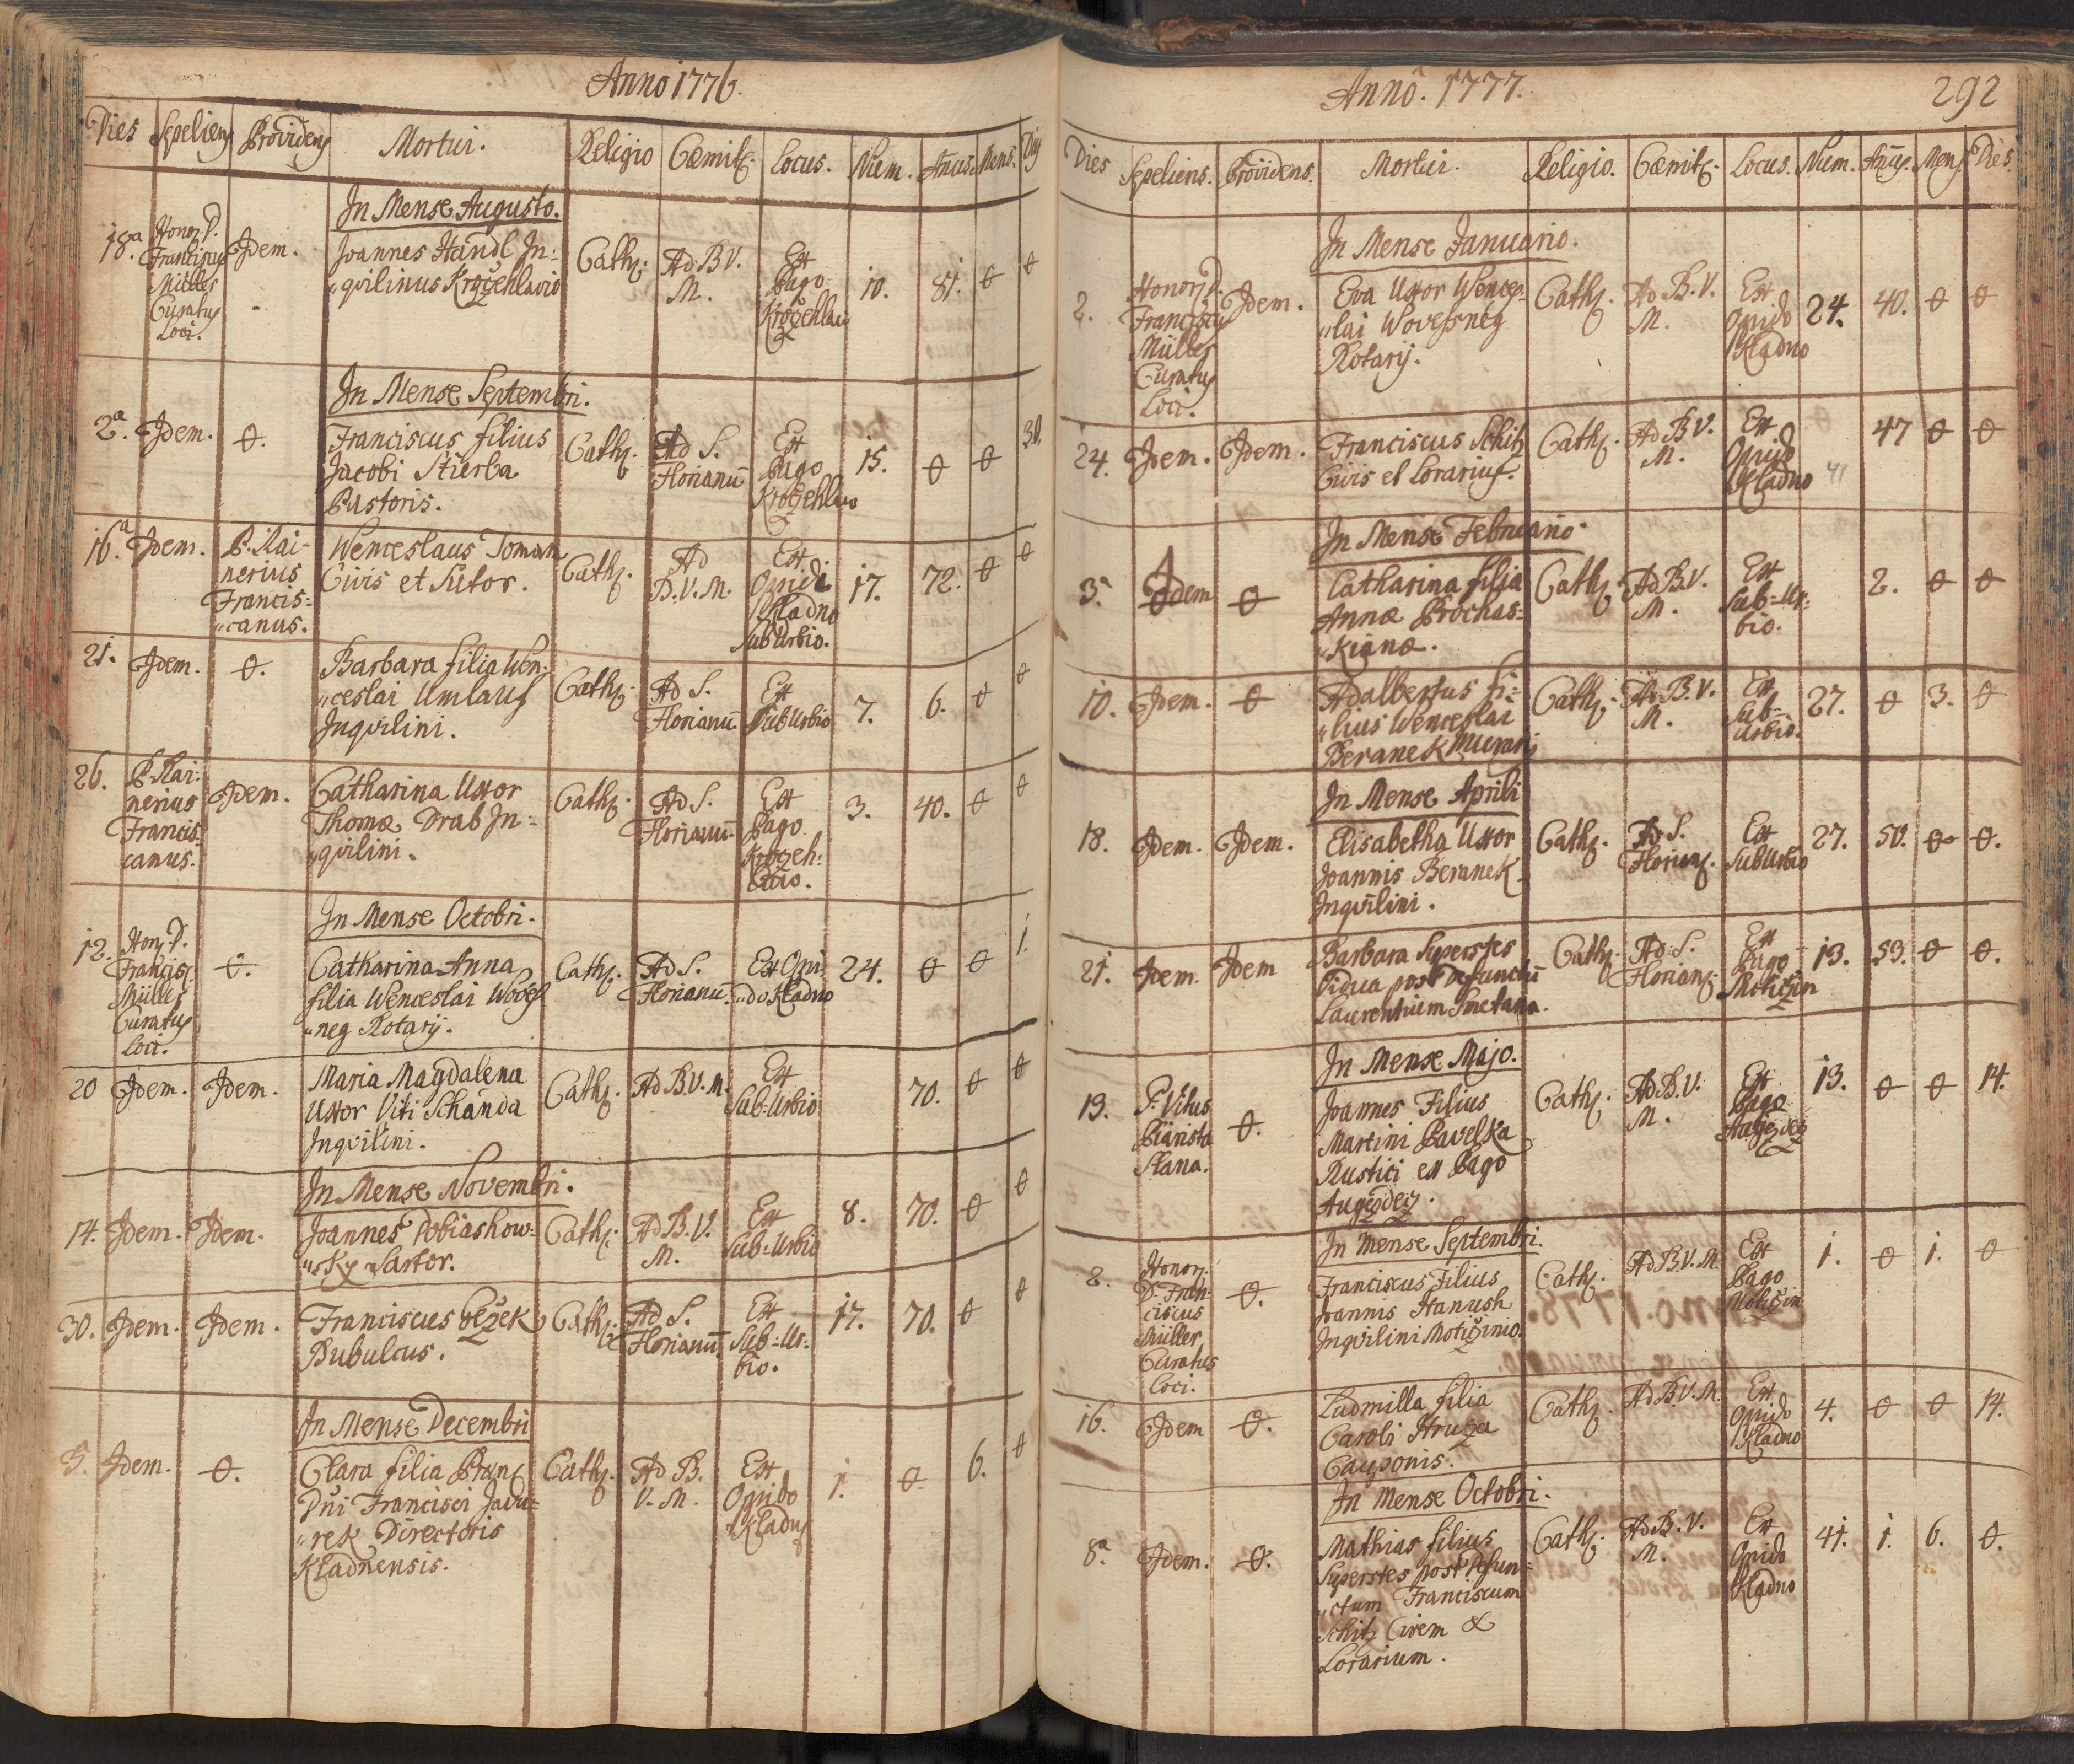 Anno 1776.
Dies Sepeliens Providens Mortui. Religio Cæmit. Locus. Num. Annus. Mens. Dies
In Mense Augusto.
18a. Honor. D. Idem. Joannes Handl In= Cath. Ad B V. Ex 10. 81. 0 0
Franciscus „quilinus Krozehlavio M. Pago
Müller Krozehlav
Curatus
Loci.
In Mense Septembri.
2a. Idem. 0. Franciscus filius Cath. Ad S. Ex 15. 0 0 30.
Jacobi Stierba Florianū Pago
Pastoris. Krozehlavio
16a. Idem. P. Rai- Wenceslaus Toman Cath. Ad Ex 17. 72. 0 0
nerius Civis et Sutor. B.V.M. Opidi
Francis= Kladno
„canus. SubUrbio.
21. Idem. 0. Barbara filia Wen- Cath. Ad S. Ex 7. 6. 0 0
„ceslai Umlauf Florianū SubUrbio
Inquilini.
26. P. Rai- Idem. Catharina Uxor Cath. Ad S. Ex 3. 40. 0 0
nerius Thomæ Drab In= Florianū Pago
Francis- „quilini. Krozeh=
canus. lavio.
In Mense Octobri.
12. Hon. D. 0. Catharina Anna Cath. Ad S. Ex Opi 24. 0 0 1.
Francisc. filia Wenceslai Woves Florianū „do Kladno
Müller „neg Rotarij.
Curatus
Loci.
20 Idem. Idem. Maria Magdalena Cath. Ad B.V.M. Ex 70. 0 0
Uxor Viti Schanda Sub=Urbio
Inquilini.
In Mense Novembri.
14. Idem. Idem. Joannes Dobiashow= Cath. Ad B.V. Ex 8. 70. 0 0
„sky Sartor. M. Sub=Urbio
30. Idem. Idem. Franciscus Cezek Cath. Ad S. Ex 17. 70. 0 0
Bubulcus. Florianū Sub=Ur=
bio.
In Mense Decembri
Idem. 0. Clara filia Præn. Cath. Ad B. Ex 1. 0. 6. 0
Dni Francisci Javu= V.M. Opido
„rek Directoris Kladn
Kladnensis.
Anno. 1777. 292
Dies Sepeliens. Providens. Mortui. Religio. Cæmit. Locus. Num. Annus. Mens. Dies.
In Mense Januario.
2. Honor. D. Idem. Eva Uxor Wences- Cath. Ad B.V. Ex 24. 40. 0 0
Franciscus „lai Wovesneg M. Opido
Müller Rotarij. Kladno
Curatus
Loci.
24. Idem. Idem. Franciscus Schitz Cath. Ad B V. Ex 47 0 0
Civis et Lorarius. M. Opido
Kladno 41
In Mense Februario.
3. Idem 0 Catharina filia Cath. Ad B.V. Ex 2. 0 0
Annæ Prochas= M. Sub=Ur=
„kianæ. bio.
10. Idem. 0 Adalbertus fi= Cath. Ad B.V. Ex 27. 0 3. 0
„lius Wenceslai M. Sub=
Beranek Murarij Urbio.
In Mense Aprili
18. Idem. Idem. Elisabetha Uxor Cath. Ad S. Ex 27. 50. 0 0.
Joannis Beranek Florian. SubUrbio
Inquilini.
21. Idem. Idem Barbara Superstes Cath. Ad S. Ex 13. 53. 0 0.
Vidua post Defunctū Florian. Pago
Laurentium Smetana. Motičin
In Mense Majo.
13. P. Vitus 0. Joannes Filius Cath. Ad B.V. Ex 13. 0 0 14.
Piarista Martini Pavelka M. Pago
Slana. Rustici ex Pago Augezdez
Augezdez.
In Mense Septembri.
2. Honor. 0. Franciscus Filius Cath. Ad B.V.M. Ex 1. 0 1. 0
D. Fran- Joannis Hanush Pago
ciscus Inquilini Motičinio. Motičin
Müller
Curatus
Loci.
16. Idem 0. Ludmilla filia Cath. Ad B.V.M. Ex 4. 0 0 14.
Caroli Hruza Opido
Cauponis. Kladno
In Mense Octobri.
8a. Idem. 0. Mathias filius Cath. Ad B.V. Ex 41. 1. 6. 0.
Superstes post Defun= M. Opido
„ctum Franciscum Kladno
Schitz Civem &
Lorarium.